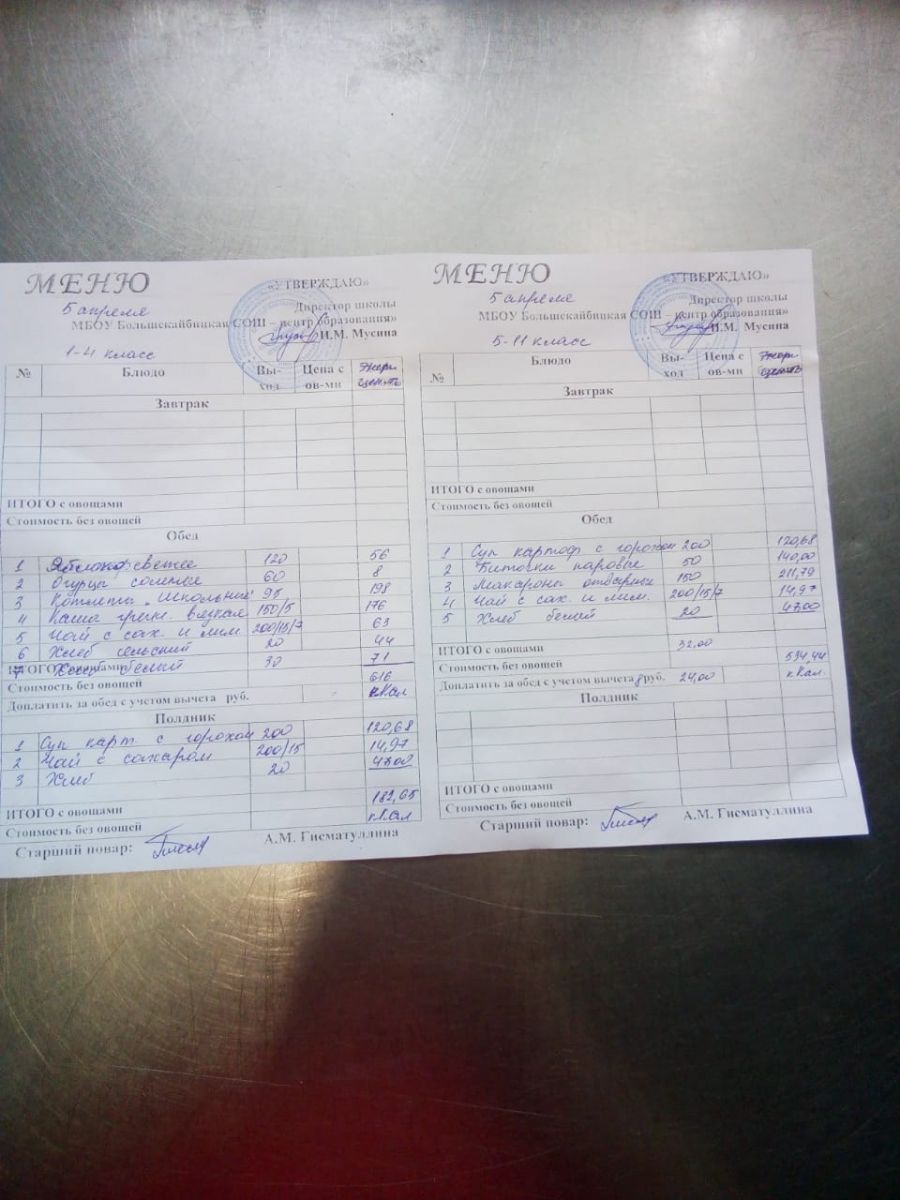 МЕНЮ
«УТВЕРЖДАЮ»
5 апреля
Директор школы
МБОУ Большекайбицкая СОШ – центр образования»
И.М. Мусина
1-4 класс
№ Блюдо Вы-ход Цена с ов-ми Энерг. ценность
Завтрак
ИТОГО с овощами
Стоимость без овощей
Обед
1 Яблоко свежее 120 56
2 Огурцы соленые 60 8
3 Котлета "Школьные" 95 198
4 Каша гречн. вязкая 150/5 176
5 Чай с сах. и лим. 200/15/7 63
6 Хлеб сельский 20 44
7 Хлеб белый 30 71
ИТОГО с овощами
Стоимость без овощей 616
Доплатить за обед с учетом вычета руб. кКал
Полдник
1 Суп карт. с горохом 200 120,68
2 Чай с сахаром 200/15 14,97
3 Хлеб 20 47,00
ИТОГО с овощами 182,65
Стоимость без овощей кКал
Старший повар: А.М. Гисматуллина
МЕНЮ
«УТВЕРЖДАЮ»
5 апреля
Директор школы
МБОУ Большекайбицкая СОШ – центр образования»
И.М. Мусина
5-11 класс
№ Блюдо Вы-ход Цена с ов-ми Энерг. ценность
Завтрак
ИТОГО с овощами
Стоимость без овощей
Обед
1 Суп картоф с горохом 200 120,68
2 Биточки паровые 50 140,00
3 Макароны отварные 150 211,79
4 Чай с сах. и лим. 200/15/7 14,97
5 Хлеб белый 20 47,00
ИТОГО с овощами 32,00
Стоимость без овощей 534,44
Доплатить за обед с учетом вычета руб. 24,00 кКал.
Полдник
ИТОГО с овощами
Стоимость без овощей
Старший повар: А.М. Гисматуллина